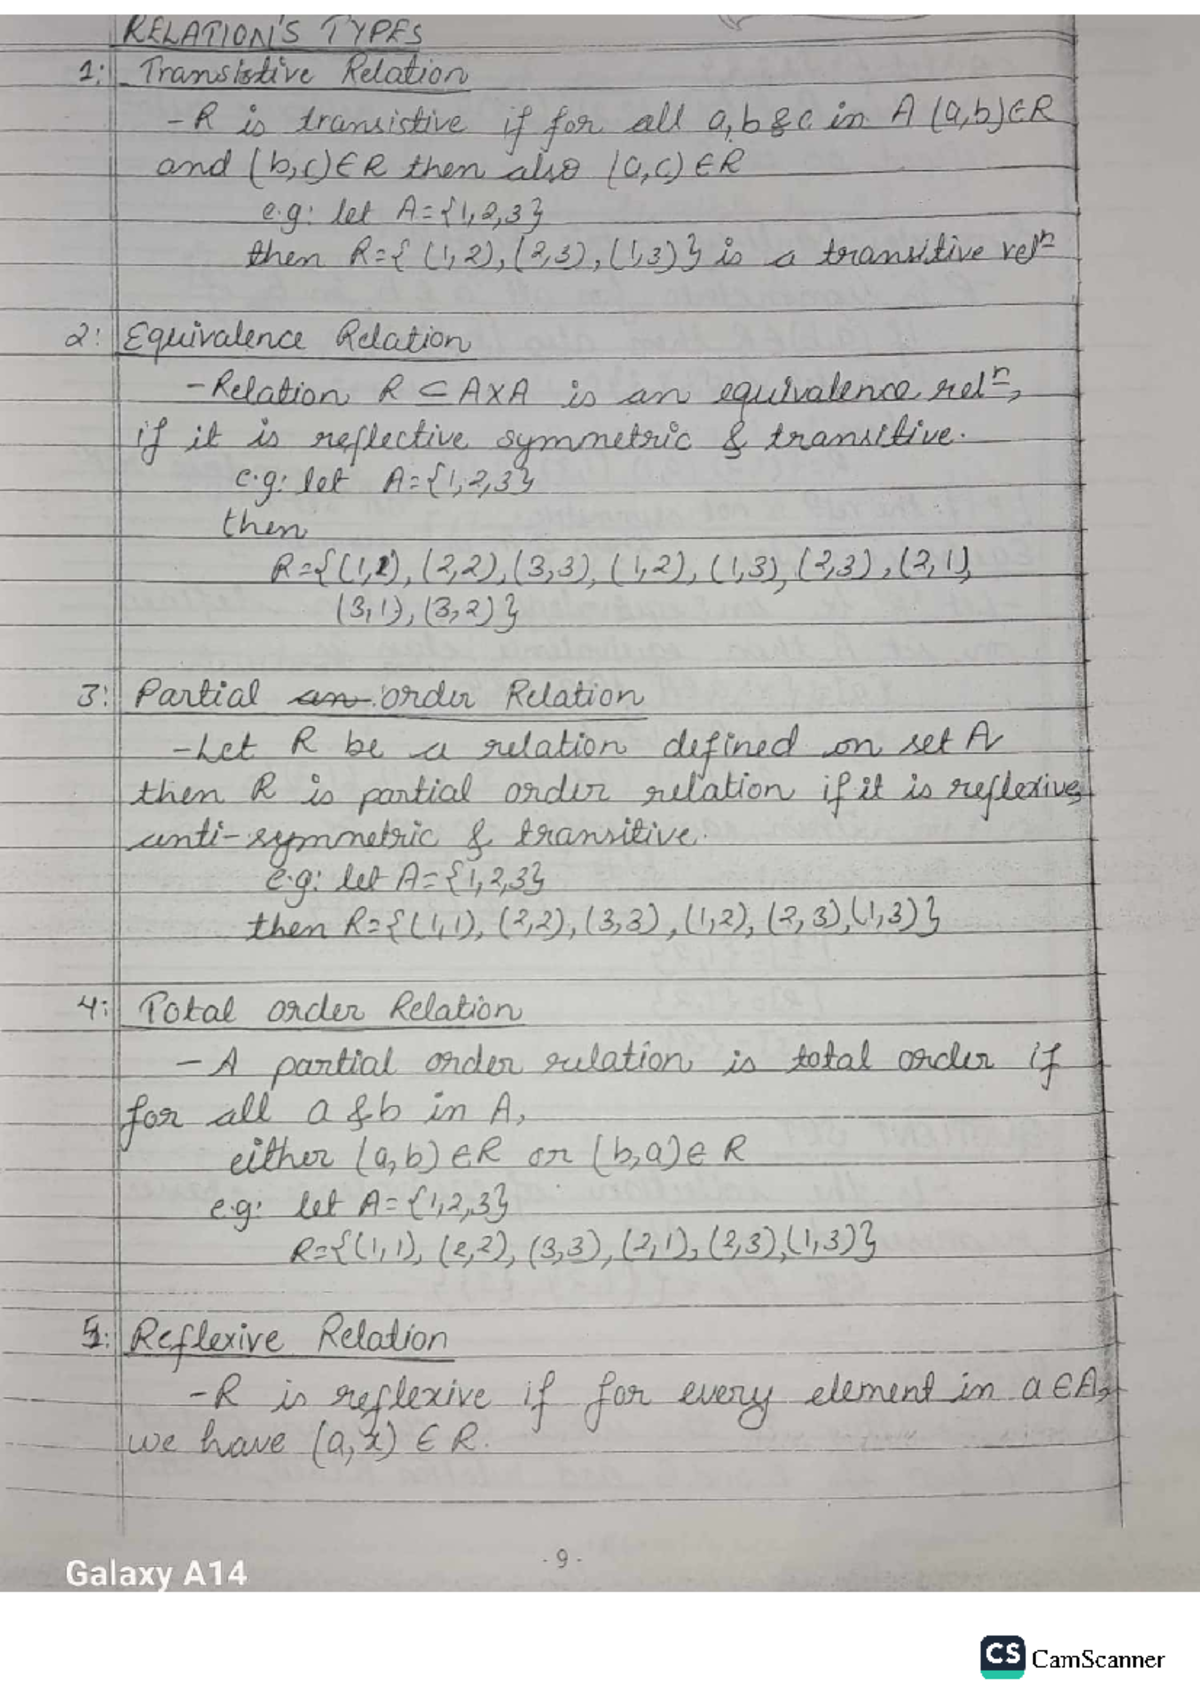 RELATION'S TYPES
1: Transistive Relation
- R is transistive if for all a, b & c in A (a,b)∈R
and (b,c)∈R then also (a,c)∈R
e.g: let A={1,2,3}
then R={ (1,2), (2,3), (1,3)} is a transitive relⁿ
2: Equivalence Relation
- Relation R ⊂ A×A is an equivalence relⁿ,
if it is reflective symmetric & transitive.
e.g: let A={1,2,3}
then
R={(1,1), (2,2), (3,3), (1,2), (1,3), (2,3), (2,1),
(3,1), (3,2)}
3: Partial an order Relation
- Let R be a relation defined on set A
then R is partial order relation if it is reflexive,
anti-symmetric & transitive.
e.g: let A={1,2,3}
then R={(1,1), (2,2), (3,3), (1,2), (2,3), (1,3)}
4: Total order Relation
- A partial order relation is total order if
for all a & b in A,
either (a,b)∈R or (b,a)∈R
e.g: let A={1,2,3}
R={(1,1), (2,2), (3,3), (2,1), (2,3), (1,3)}
5: Reflexive Relation
- R is reflexive if for every element in a∈A,
we have (a,x)∈R.
- 9 -
Galaxy A14
CS CamScanner